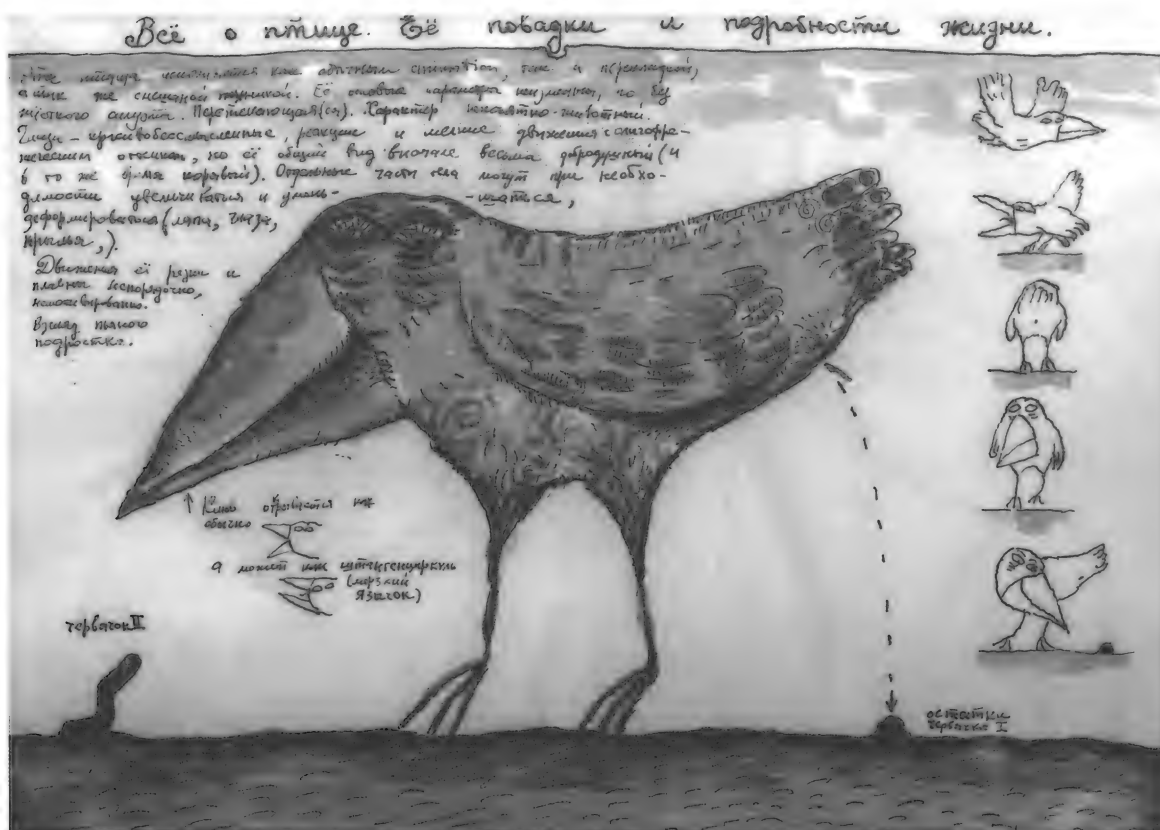 Всё о птице. Её повадки и подробности жизни.
Эта птица исполняется как обычным animation, так и перекладкой,
а так же смешной техникой. Её основные параметры неизменны, но без
жёсткого силуэта. Перетекающая(ся). Характер животный.
Глаза – кровобессмысленные, реакция и мелкие движения с олигофре-
ническим оттенком, но её общий вид вначале весьма добродушный (и
в то же время корявый). Отдельные части тела могут при необхо-
димости увеличиваться и умень- -шаться,
деформироваться (лапы, глаза,
крылья,).
Движения её резки и
плавны беспорядочно,
немотивированно.
Взгляд пьяного
подростка.
Клюв открывается как
обычно
а может как штангенциркуль
(мерзкий
язычок)
червячок II
остатки
червячка I